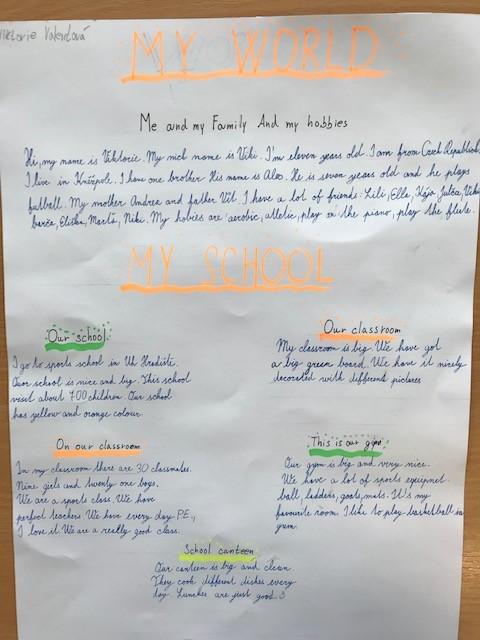 Viktorie Valentová
MY WORLD
Me and my Family And my hobbies
Hi, my name is Viktorie. My nick name is Viki. I'm eleven years old. I am from Czech Republic.
I live in Kněžpole. I have one brother. His name is Alex. He is seven years old and he plays
fatball. My mother Andrea and father Vít. I have a lot of friends: Lili, Ella, Julča, Viki
barča, Eliška, Marta, Niki. My hobies are aerobic, atletic, play on the piano, play the flute.
MY SCHOOL
Our school
I go to sports school in Uh Hradiště.
Our school is nice and big. This school
visit about 700 children. Our school
has yellow and orange colour.
Our classroom
My classroom is big. We have got
a big green board. We have it nicely
decorated with different pictures
On our classroom
In my classroom there are 30 classmates.
Nine girls and twenty one boys.
We are a sports class. We have
perfect teachers. We have every day P.E.,
I love it. We are a really good class.
This is our gym
Our gym is big and very nice.
We have a lot of sports equipmet.
ball, ladders, goals, mats. It's my
favourite room. I like to play basketball in
gym.
School canteen
Our canteen is big and clean.
They cook different dishes every
day. Lunches are just good. :)